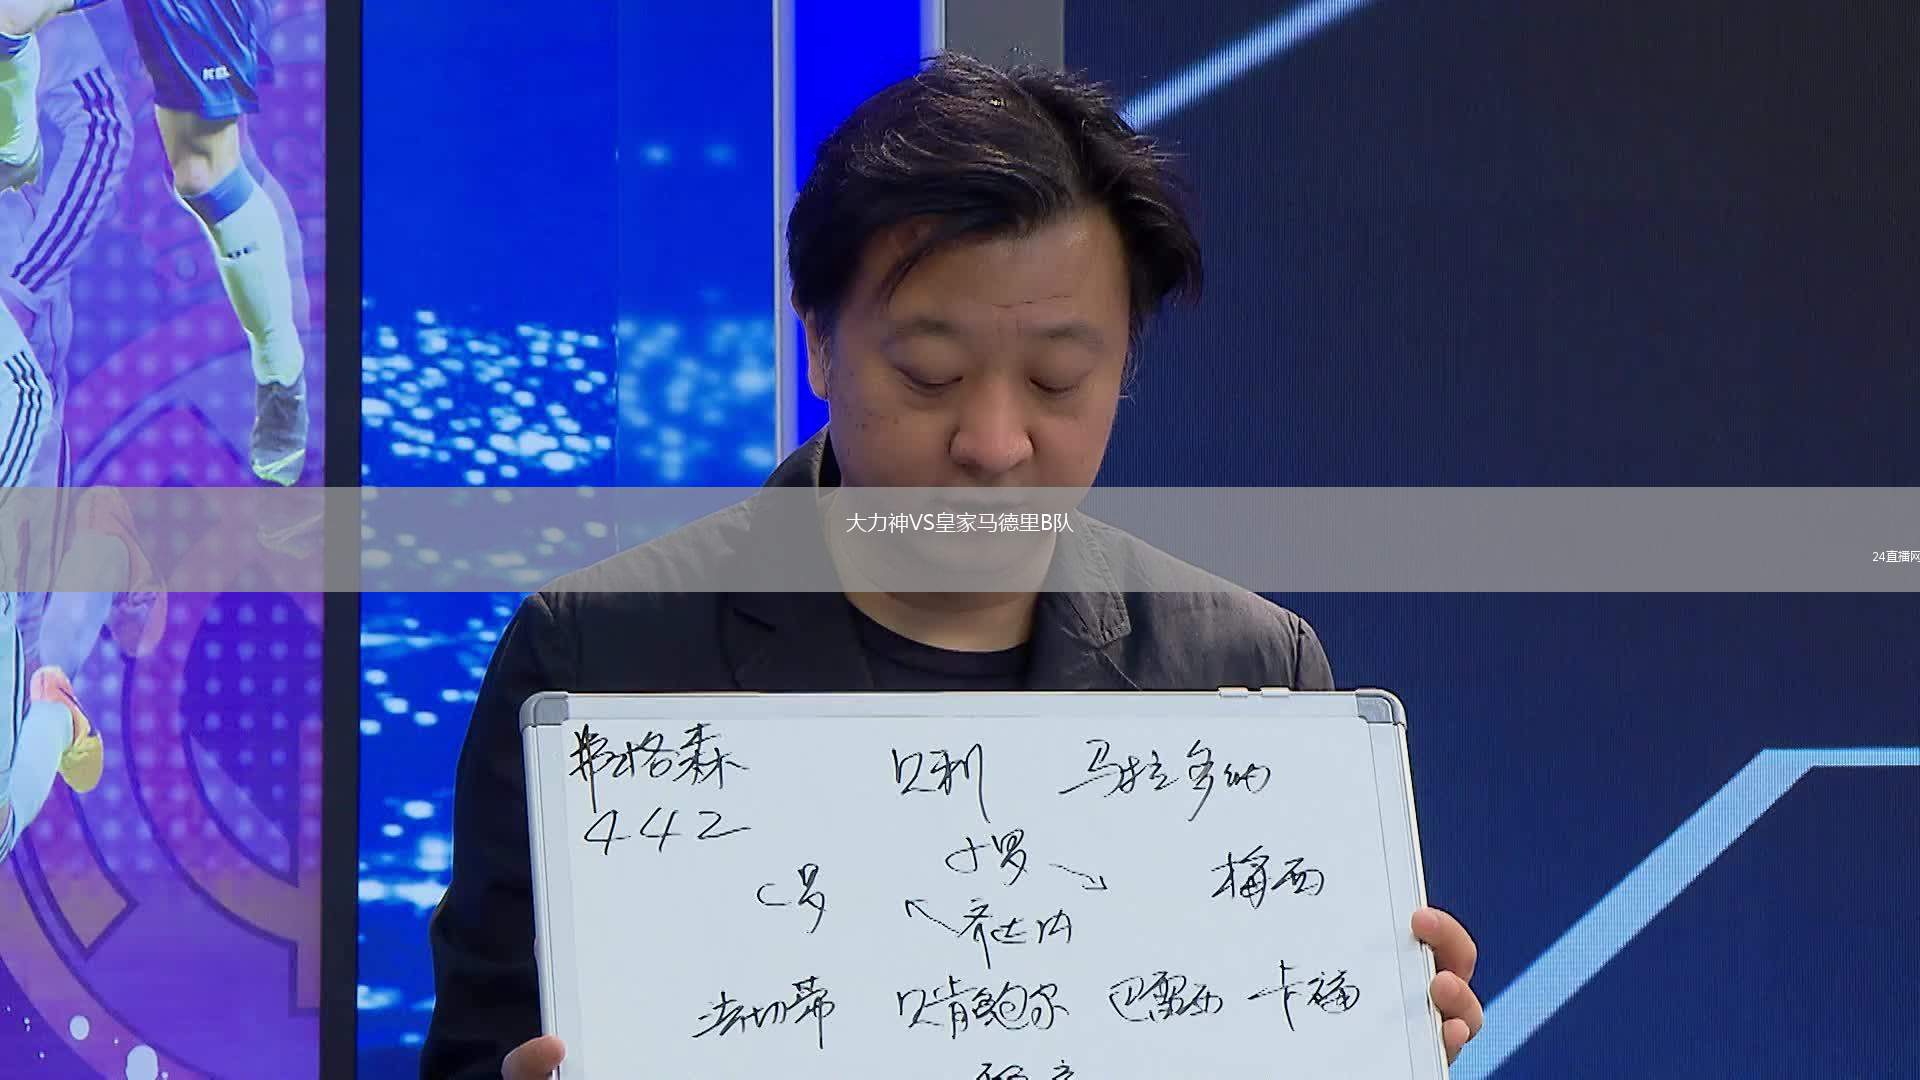 大力神VS皇家马德里B队
24直播网
弗格森 贝利 马拉多纳
442
小罗
C罗 梅西
齐达内
法切蒂 贝肯鲍尔 巴雷西 卡福